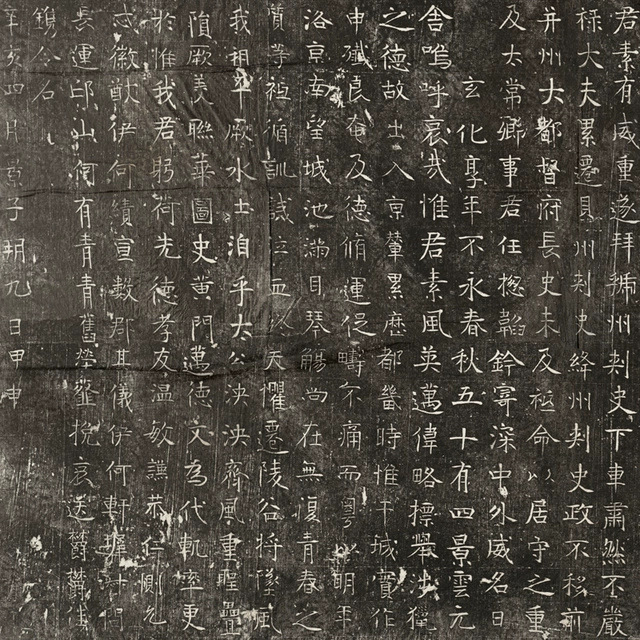 君素有威重遂拜虢州刺史下車肅然不嚴
祿大夫累遷貝州刺史絳州刺史政不移前
并州大都督府長史未及祗命以居守之重
及太常卿事君任捴韜鈐寄深中外威名日
玄化享年不永春秋五十有四景雲元
舍嗚呼哀哉惟君素風英邁偉略摽舉涉獵
之德故士入京輦累歷都畿時惟干城實作
申殲良奄及德脩運促疇不痛而粵以明年
洛京南望城池滿目琴觴尚在無復青春之
質等祗循訓誡泣血天懼遷陵谷將墜風
我祖平厥水土洎乎太公泱泱齊風重聖疊
隕厥美聯華圖史黃門邁德文為代軌率更
於惟我君躬先德孝友温敏謙恭惻允
徽猷伊何績宣數郡其儀伊何軒
長運邙山何有青青舊塋薤挽哀送鬱鬱佳
鐫令石
辛亥四月子朔九日甲申